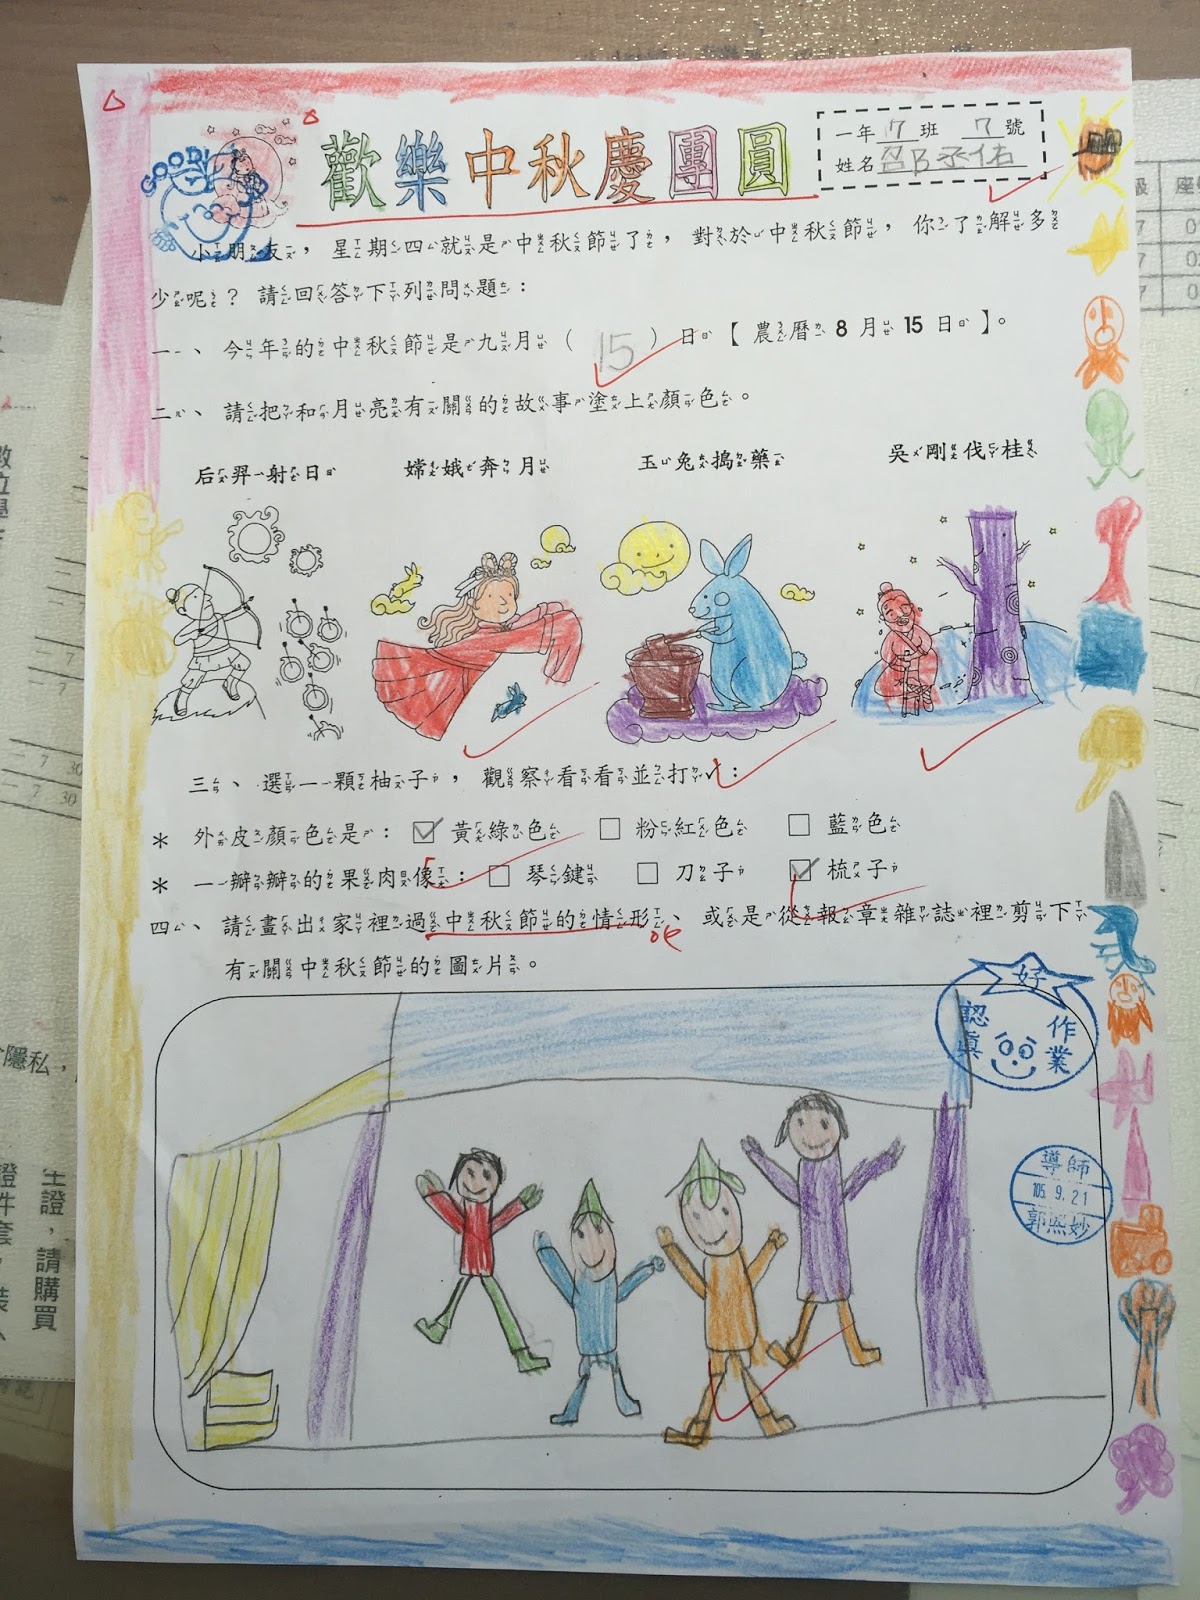 GOOD
歡樂中秋慶團圓
一年 17 班 7 號
姓名 邵丞佑
小朋友，星期四就是中秋節了，對於中秋節，你了解多
少呢？請回答下列問題：
一、今年的中秋節是九月（ 15 ）日【農曆 8 月 15 日】。
二、請把和月亮有關的故事塗上顏色。
后羿射日 嫦娥奔月 玉兔搗藥 吳剛伐桂
三、選一顆柚子，觀察看看並打✓：
＊ 外皮顏色是： ☑ 黃綠色 □ 粉紅色 □ 藍色
＊ 一瓣瓣的果肉像： □ 琴鍵 □ 刀子 ☑ 梳子
四、請畫出家裡過中秋節的情形、或是從報章雜誌裡剪下
ok
有關中秋節的圖片。
好
認真 作業
導師
105. 9. 21
郭熙妙
級 座
7 0
7 02
7 0
隱私，
生證，請購買
證件套，裝
7 30
7 30